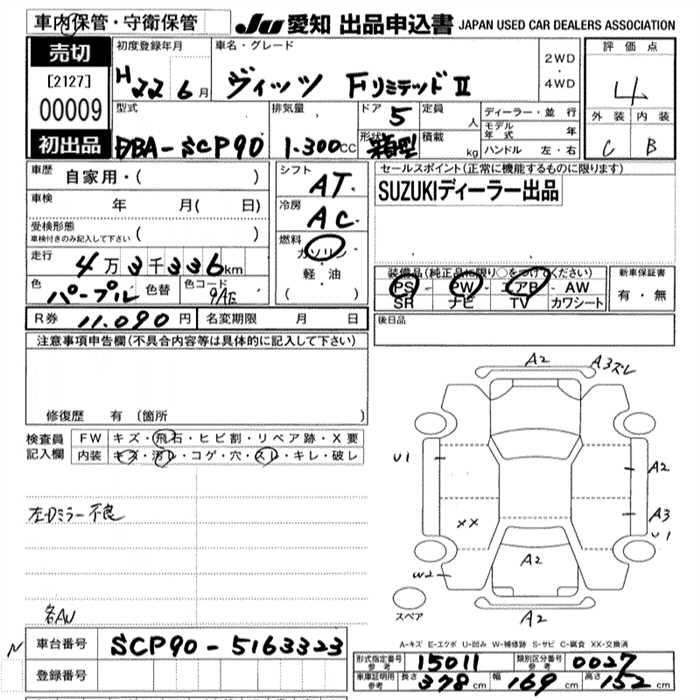 車内保管・守衛保管
JU 愛知 出品申込書 JAPAN USED CAR DEALERS ASSOCIATION
売切
[2127]
00009
初出品
初度登録年月
H22 6月
車名・グレード
ヴィッツ FリミテッドⅡ
2WD
・
4WD
評価点
4
外装 内装
C B
型式
DBA-SCP90
排気量
1.300cc
ドア 5
形状 箱型
定員 人
積載 kg
ディーラー・並行
モデル年式 年
ハンドル 左・右
車歴 自家用・( )
車検 年 月( 日)
受検形態
車検付きのみ記入して下さい ( )
走行 4万3千336km
色 パープル 色替 色コード 9AE
R券 11.090円 名変期限 月 日
シフト
AT
冷房
AC
燃料
ガソリン
・
軽・油
( )
セールスポイント(正常に機能するものに限ります)
SUZUKIディーラー出品
装備品(純正品に限り○をつけてください)
PS - PW - エアB - AW
SR ナビ TV カワシート
新車保証書
有・無
後日品
注意事項申告欄(不具合内容等は具体的に記入して下さい)
修復歴 有 〔箇所 〕
検査員記入欄
FW キズ・飛石・ヒビ割・リペア跡・X要
内装 キズ・汚レ・コゲ・穴・スレ・キレ・破レ
左Dミラー不良
A2
A3ズレ
U1
A2
A3
U1
XX
A2
W2
A2
スペア
A-キズ E-エクボ U-凹み W-補修跡 S-サビ C-腐食 XX-交換済
車台番号 SCP90-5163323
登録番号
形式指定番号 参考 15011 類別区分番号 参考 0027
車庫証明用 参考 長さ 378cm 幅 169cm 高さ 152cm